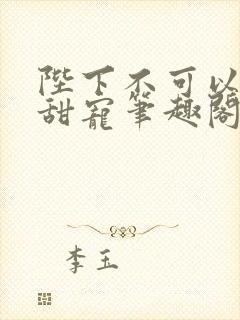 陛下不可以
甜宠笔趣阁
李玉